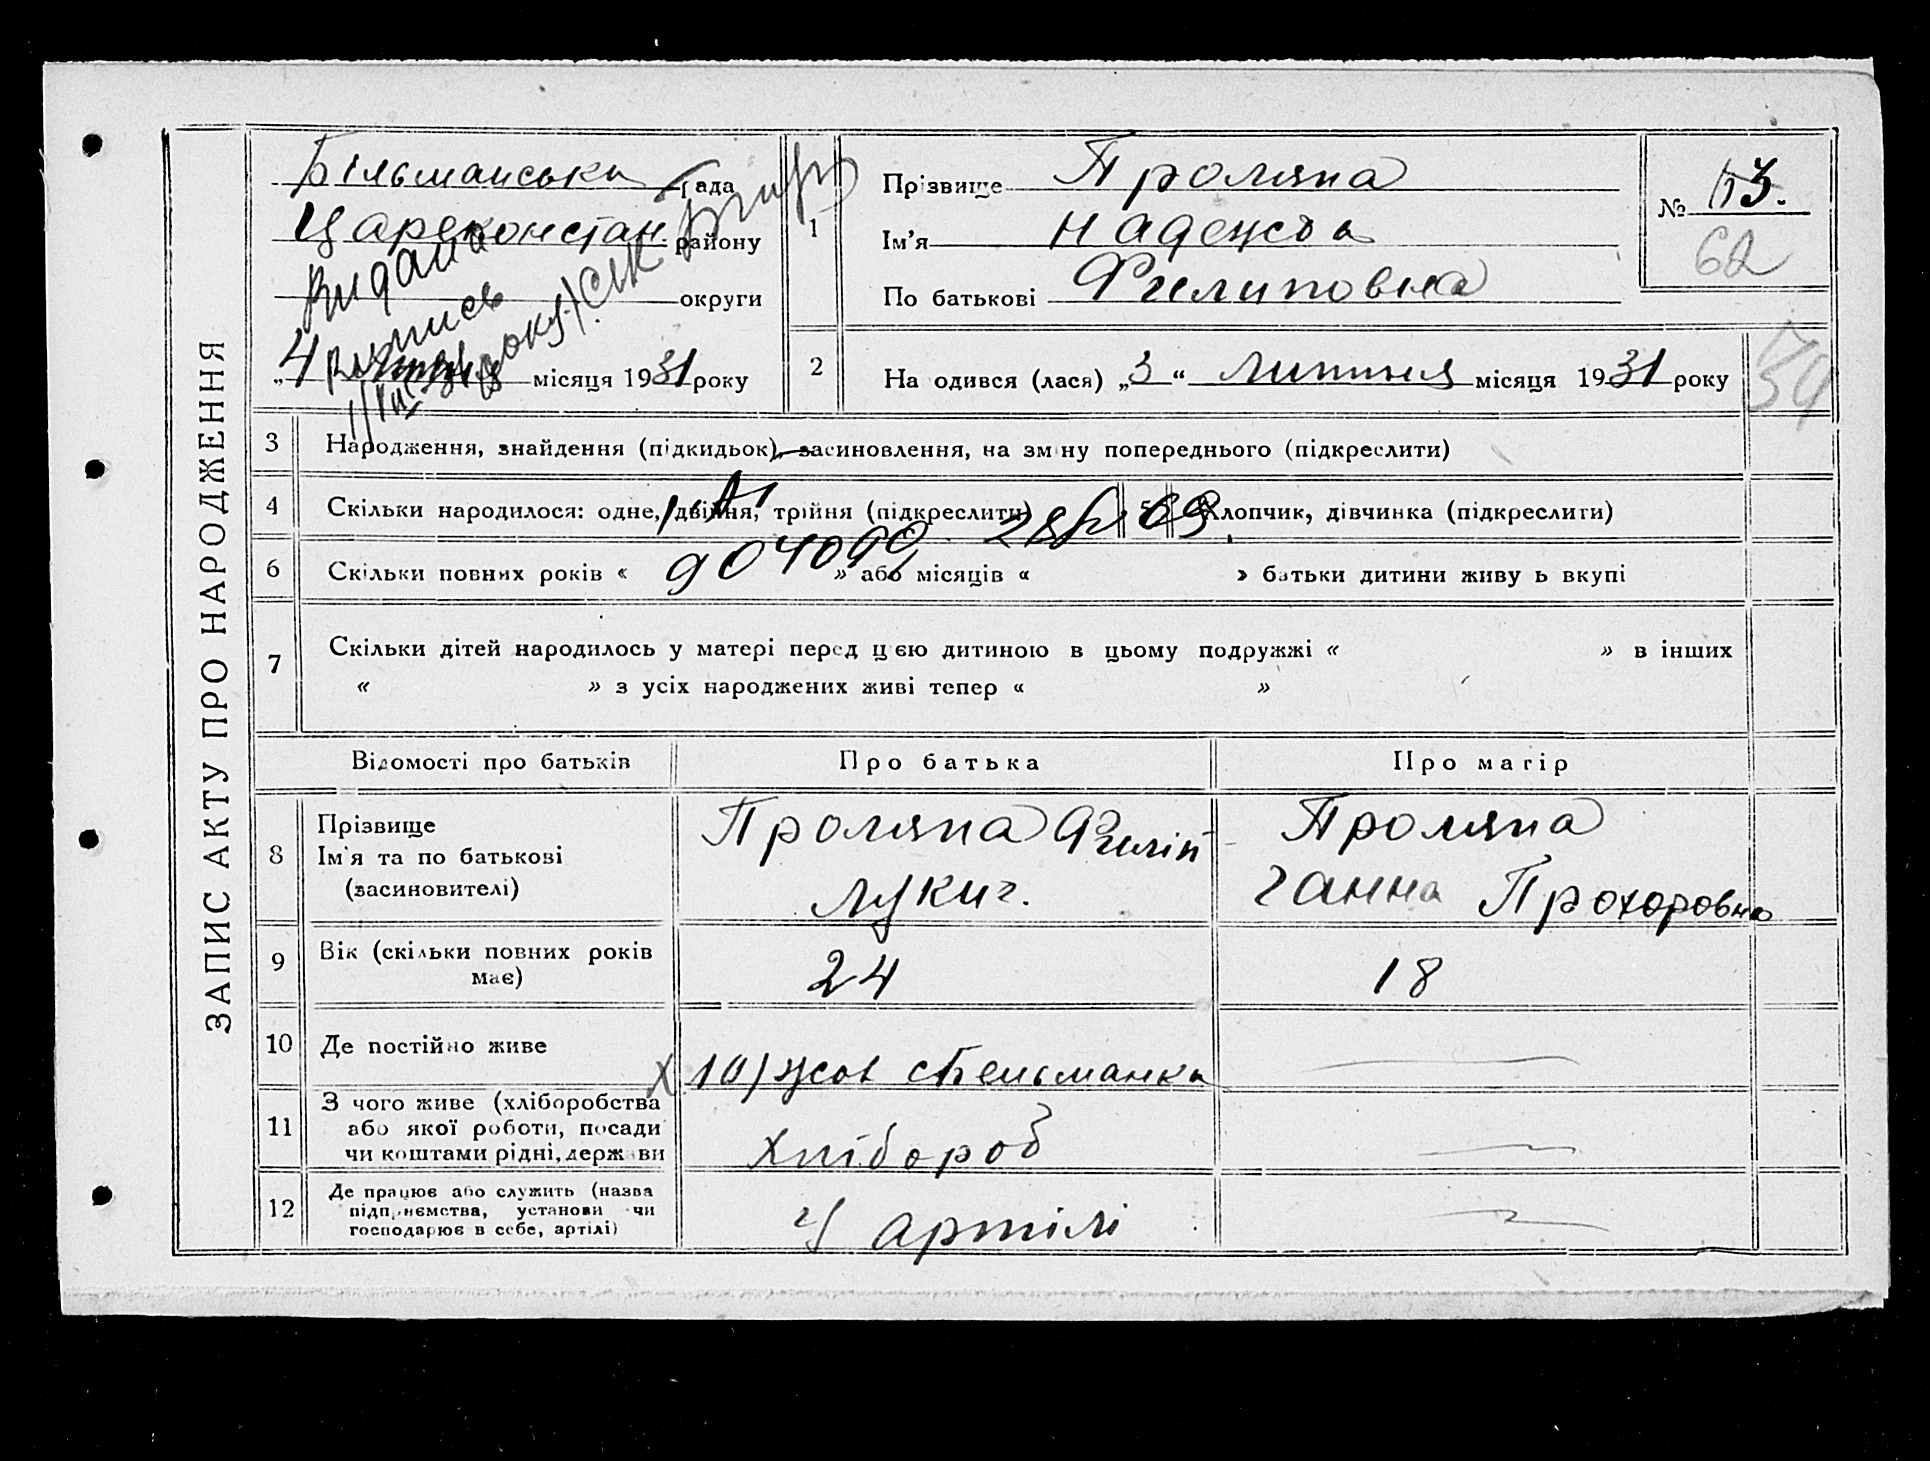 ЗАПИС АКТУ ПРО НАРОДЖЕННЯ
Більманська рада
Цареконстан району
округи
„4 місяця 1931 року
Видано
выпись
1
Прізвище Проляпа
Ім'я Надежда
По батькові Филиповна
№ 53.
62
2
На одився (лася) „3“ липння місяця 1931 року
34
3
Народження, знайдення (підкидьок), засиновлення, на зміну попереднього (підкреслити)
4
Скільки народилося: одне, двійня, трійня (підкреслити)
5
Хлопчик, дівчинка (підкреслити)
904099
6
Скільки повних років « » або місяців « » батьки дитини живу ь вкупі
7
Скільки дітей народилось у матері перед цією дитиною в цьому подружжі « » в інших
« » з усіх народжених живі тепер « »
Відомості про батьків
Про батька
Про матір
8
Прізвище
Ім'я та по батькові
(засиновителі)
Проляпа Филіп
Лукич.
Проляпа
Ганна Прохоровна
9
Вік (скільки повних років
має)
24
18
10
Де постійно живе
х 10) жов с Бельманка
11
З чого живе (хліборобства
або якої роботи, посади
чи коштами рідні, держави
Хлібороб
12
Де працює або служить (назва
підприємства, установи чи
господарює в себе, артілі)
У артілі